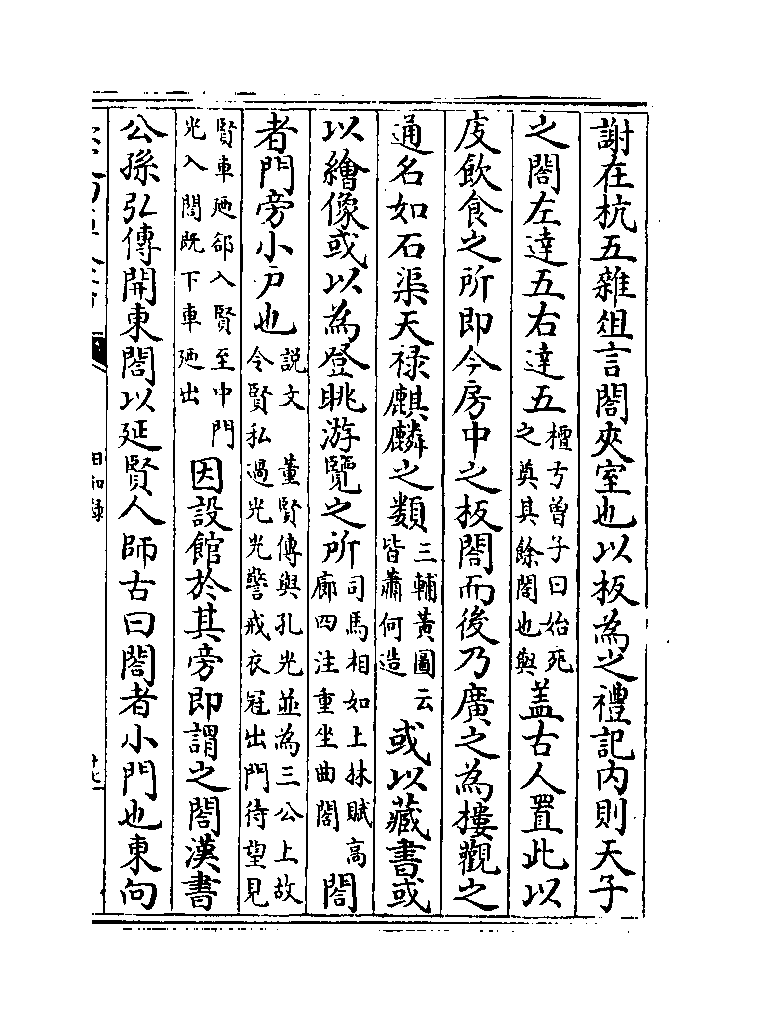 謝在杭五雜俎言閣夾室也以板為之禮記内則天子
之閣左達五右達五
檀弓曾子曰始死
之奠其餘閣也與
蓋古人置此以
庋飲食之所即今房中之板閣而後乃廣之為樓觀之
通名如石渠天禄麒麟之類
三輔黃圖云
皆蕭何造
或以藏書或
以繪像或以為登眺游覽之所
司馬相如上林賦高
廊四注重坐曲閣
閤
者門旁小户也
説文 董賢傳與孔光並為三公上故
令賢私過光光警戒衣冠出門待望見
賢車廼郤入賢至中門
光入閤既下車廼出
因設館於其旁即謂之閤漢書
公孫弘傳開東閤以延賢人師古曰閤者小門也東向
日知録